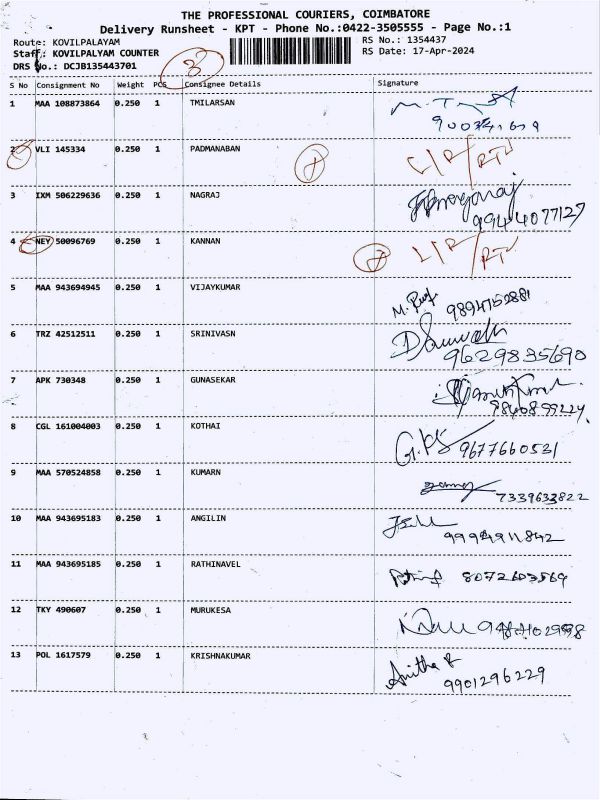 THE PROFESSIONAL COURIERS, COIMBATORE
Delivery Runsheet - KPT - Phone No.:0422-3505555 - Page No.:1
Route: KOVILPALAYAM RS No.: 1354437
Staff: KOVILPALYAM COUNTER RS Date: 17-Apr-2024
DRS No.: DCJB135443701
S No Consignment No Weight PCS Consignee Details Signature
1 MAA 108873864 0.250 1 TMILARSAN
2 VLI 145334 0.250 1 PADMANABAN
3 IXM 506229636 0.250 1 NAGRAJ
9944077127
4 NEY 50096769 0.250 1 KANNAN
5 MAA 943694945 0.250 1 VIJAYKUMAR
9894752881
6 TRZ 42512511 0.250 1 SRINIVASN
9629835690
7 APK 730348 0.250 1 GUNASEKAR
9840899224
8 CGL 161004003 0.250 1 KOTHAI
9677660531
9 MAA 570524858 0.250 1 KUMARN
7339633822
10 MAA 943695183 0.250 1 ANGILIN
9994911842
11 MAA 943695185 0.250 1 RATHINAVEL
8072603569
12 TKY 490607 0.250 1 MURUKESA
13 POL 1617579 0.250 1 KRISHNAKUMAR
Anitha
9901296229